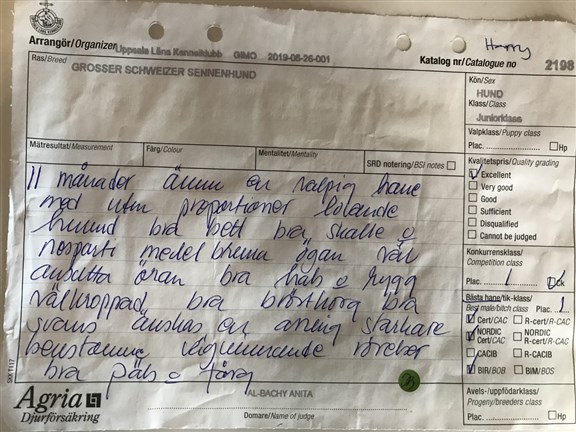 Arrangör/Organizer Uppsala Läns Kennelklubb GIMO 2019-05-26-001
Harry
Katalog nr/Catalogue no 2198
Ras/Breed GROSSER SCHWEIZER SENNENHUND
Kön/Sex
HUND
Klass/Class
Juniorklass
Valpklass/Puppy class
Plac. Hp
Mätresultat/Measurement Färg/Colour Mentalitet/Mentality SRD notering/BSI notes
Kvalitetspris/Quality grading
Excellent
Very good
Good
Sufficient
Disqualified
Cannot be judged
11 månader ännu en valpig hane
med utm proportioner lovande
huvud bra bett bra skalle o
nosparti medel bruna ögon väl
ansatta öron bra hals o rygg
välkroppad bra bröstkorg bra
svans önskas en aning starkare
benstomme vägvinnande rörelser
bra päls o färg
Konkurrensklass/
Competition class
Plac. 1 Ck
Bästa hane/tik-klass/
Best male/bitch class Plac. 1
Cert/CAC R-cert/R-CAC
NORDIC Cert/CAC NORDIC R-cert/R-CAC
CACIB R-CACIB
BIR/BOB BIM/BOS
Avels-/uppfödarklass/
Progeny/breeders class
Plac. Hp
SKK T117
Agria
Djurförsäkring
AL-BACHY ANITA
Domare/Name of judge